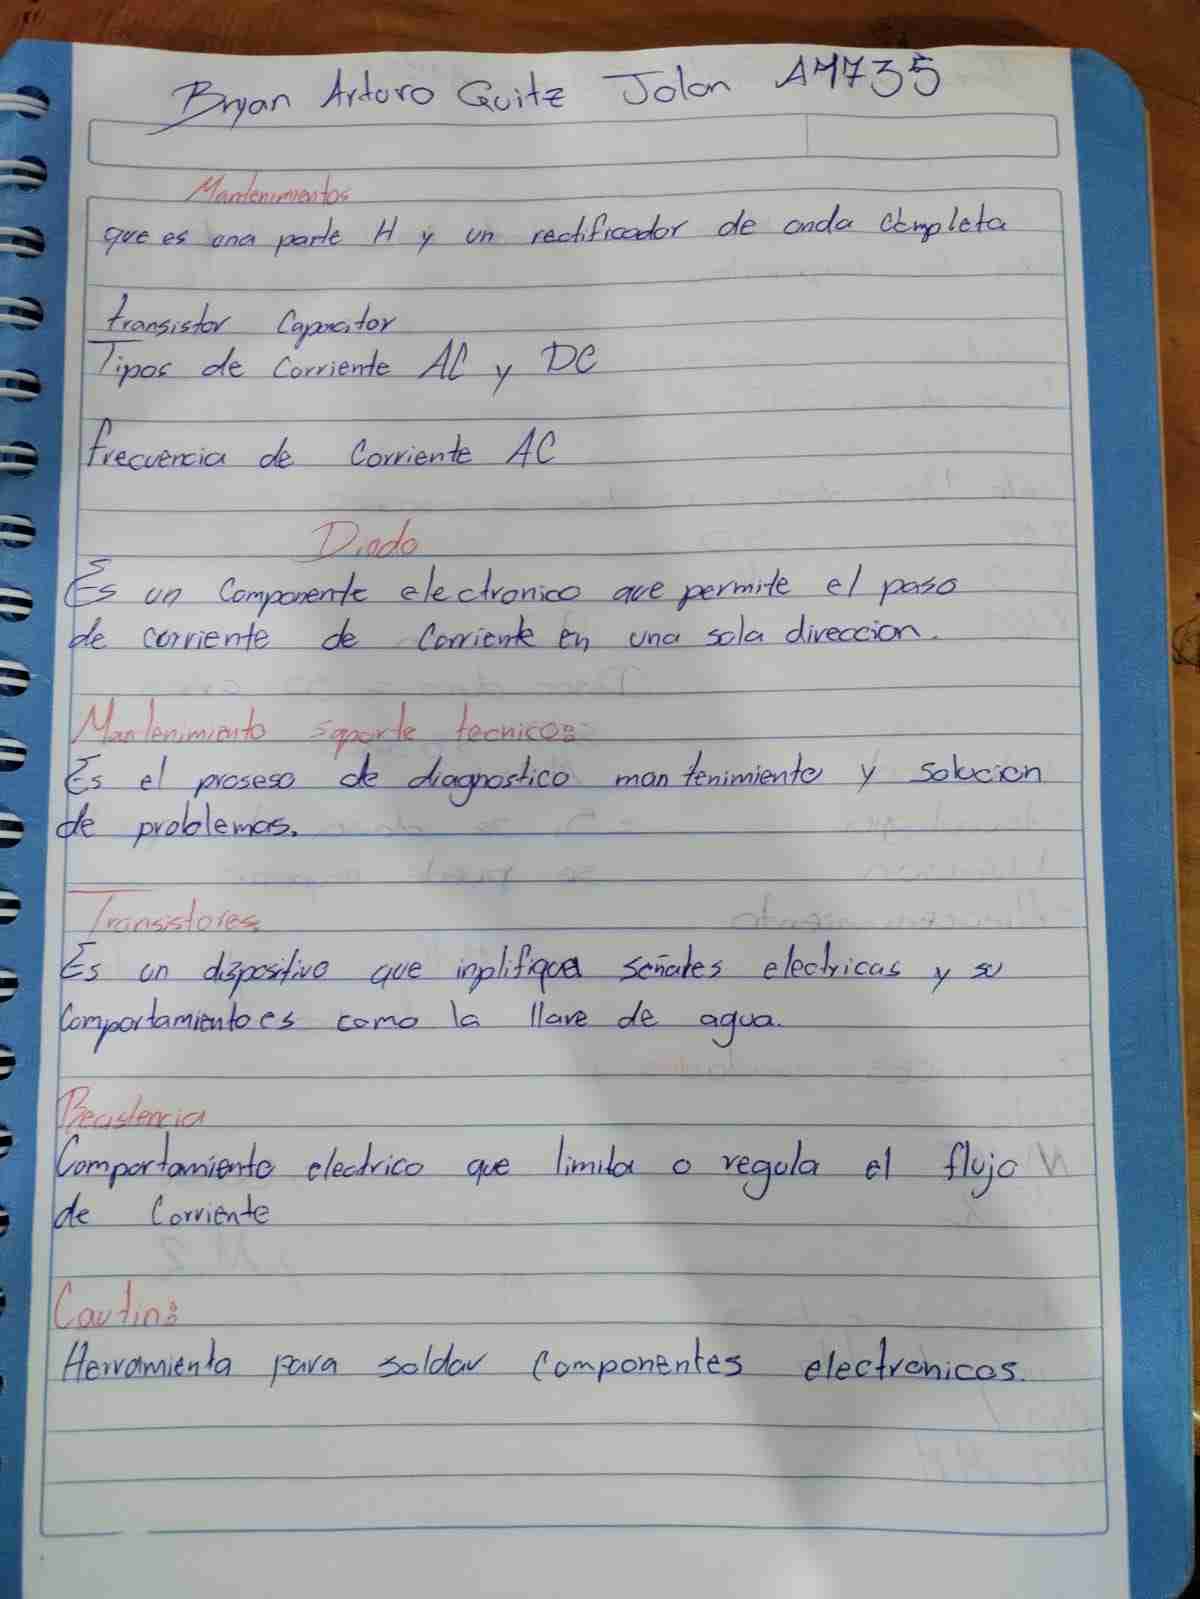 Bryan Arturo Quitz Jolon A4735
Mantenimientos
que es una parte H y un rectificador de onda completa
transistor Capacitor
Tipos de Corriente AC y DC
frecuencia de Corriente AC
Diodo
Es un Componente electronico que permite el paso
de corriente de Corriente en una sola direccion.
Mantenimiento soporte tecnico:
Es el proseso de diagnostico mantenimiento y solucion
de problemas.
Transistores
Es un dispositivo que inplifique señales electricas y su
Comportamiento es como la llave de agua.
Recistencia
Comportamiento electrico que limita o regula el flujo
de Corriente
Cautin:
Herramienta para soldar Componentes electronicos.